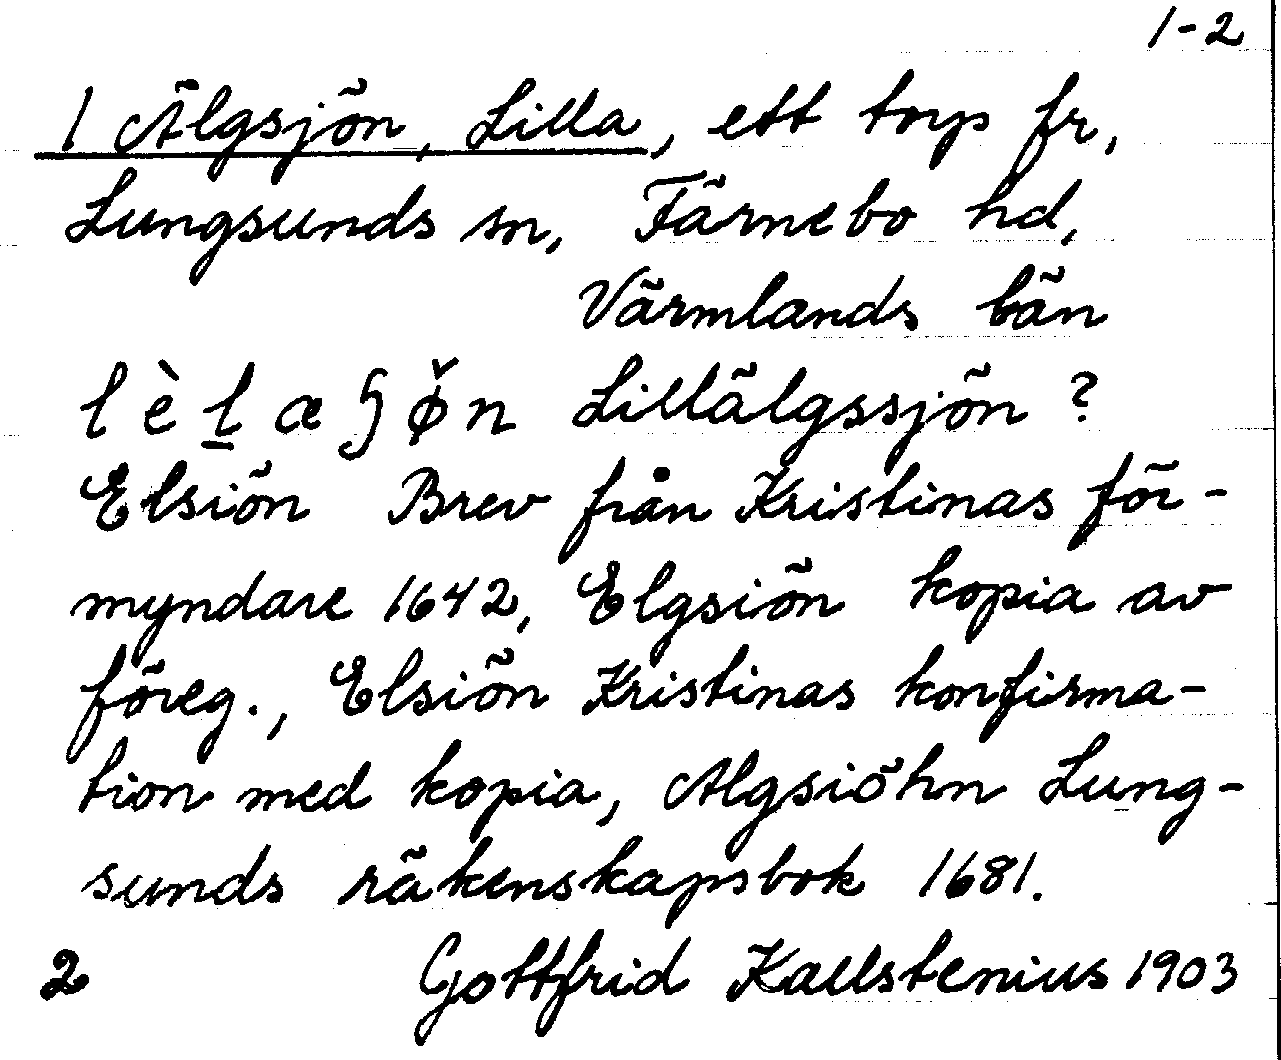 1-2
1 Älgsjön, Lilla, ett torp fr,
Lungsunds sn, Färnebo hd,
Värmlands län
l è l̲ æ ʃ ø̌ n Lillälgssjön ?
Elsiön Brev från Kristinas för-
myndare 1642, Elgsiön kopia av
föreg., Elsiön Kristinas konfirma-
tion med kopia, Algsiöhn Lung-
sunds räkenskapsbok 1681.
2 Gottfrid Kallstenius 1903